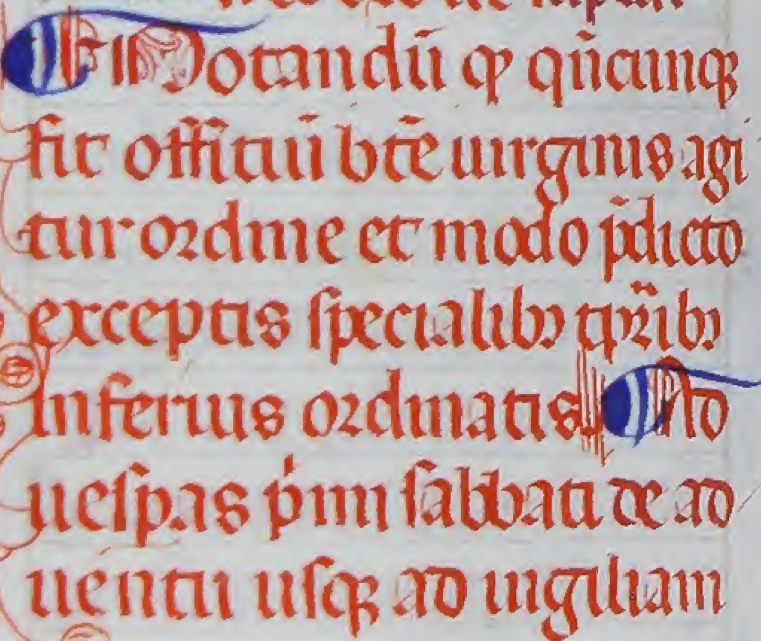 Notandũ ꝙ qñcunqꝫ
fit officiũ btẽ uirginis agi
tur ordine et modo p̃dicto
exceptis specialibꝫ tp̃ribꝫ
inferius ordinatis. Ad
uesp̃as p̃mi sabbati de ad
uentu usqꝫ ad uigiliam